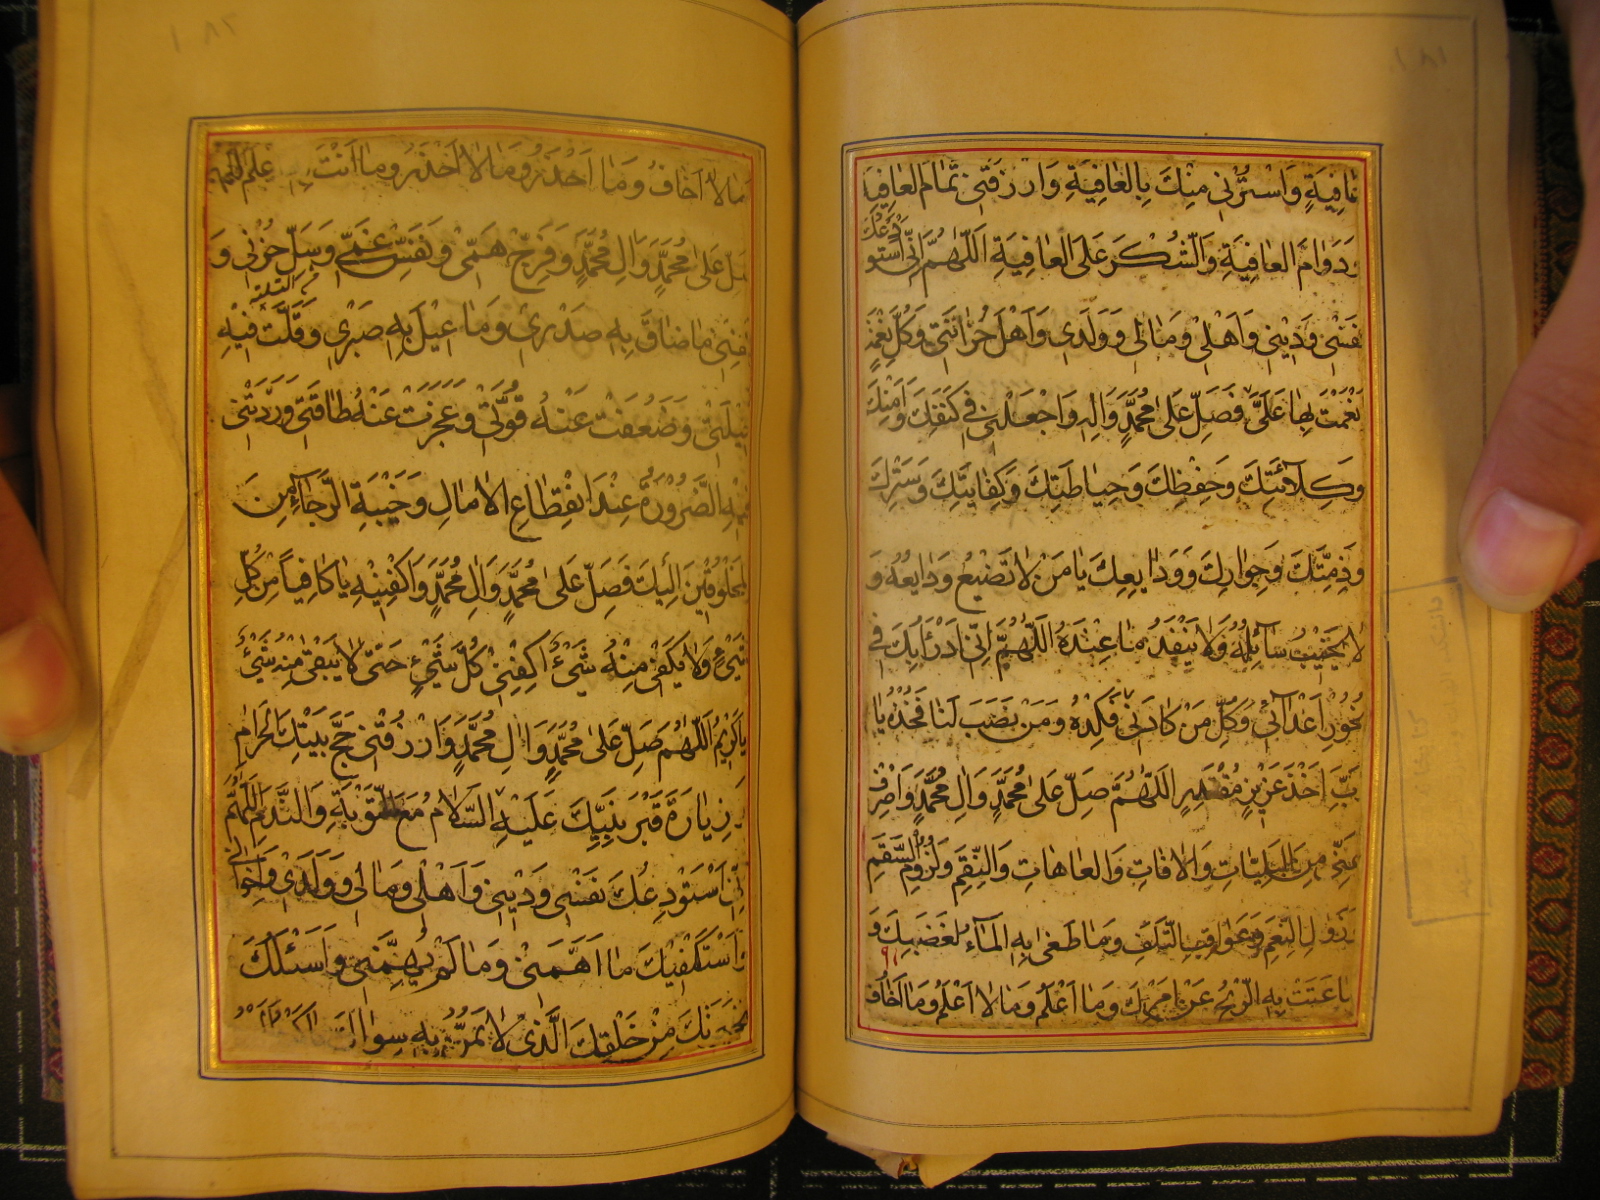 ١٨١
عافِيَةٍ وَاسْتُرْنى مِنْكَ بِالعافِيَةِ وَارْزُقْنى تَمامَ العافِيَةِ
وَدَوامَ العافِيَةِ وَالشُّكْرَ عَلَى العافِيَةِ اَللّهُمَّ اِنّى اَسْتَوْدِعُكَ
نَفْسى وَدينى وَاَهْلى وَمالى وَوَلَدى وَاَهْلَ حُزانَتى وَكُلَّ نِعْمَةٍ
اَنْعَمْتَ بِها عَلَىَّ فَصَلِّ عَلى مُحَمَّدٍ وَالِهِ وَاجْعَلْنى فى كَنَفِكَ وَاَمْنِكَ
وَكِلآئَتِكَ وَحِفْظِكَ وَحِياطَتِكَ وَكِفايَتِكَ وَسَتْرِكَ
وَذِمَّتِكَ وَجِوارِكَ وَوَدايِعِكَ يا مَنْ لا تَضيعُ وَدايِعُهُ وَ
لا يَخيبُ سآئِلُهُ وَلا يَنْفَدُ ما عِنْدَهُ اَللّهُمَّ اِنّى اَدْرَاُ بِكَ فى
نُحُورِ اَعْدآئى وَكُلِّ مَنْ كادَنى فَكِدْهُ وَمَنْ نَصَبَ لَنا فَخُذْهُ يا
رَبِّ اَخْذَ عَزيزٍ مُقْتَدِرٍ اَللّهُمَّ صَلِّ عَلى مُحَمَّدٍ وَالِ مُحَمَّدٍ وَاصْرِفْ
عَنّى مِنَ البَلِيّاتِ وَالافاتِ وَالعاهاتِ وَالنِّقَمِ وَلُزُومِ السَّقَمِ
وَزَوالِ النِّعَمِ وَعَواقِبِ التَّلَفِ وَما طَغى بِهِ المآءُ لِغَضَبِكَ وَ
ما عَتَتْ بِهِ الرّيحُ عَنْ اَمْرِكَ وَما اَعْلَمُ وَما لا اَعْلَمُ وَما اَخافُ
١٨٢
وَما لا اَخافُ وَما اَحْذَرُ وَما لا اَحْذَرُ وَما اَنْتَ بِهِ اَعْلَمُ اَللّهُمَّ
صَلِّ عَلى مُحَمَّدٍ وَالِ مُحَمَّدٍ وَفَرِّجْ هَمّى وَنَفِّسْ غَمّى وَسَلِّ حُزْنى وَ
اكْفِنى ما ضاقَ بِهِ صَدْرى وَما عيلَ بِهِ صَبْرى وَقَلَّتْ فيهِ
حيلَتى وَضَعُفَتْ عَنْهُ قُوَّتى وَعَجَزَتْ عَنْهُ طاقَتى وَرَدَّتْنى
فيهِ الضَّرُورَةُ عِنْدَ انْقِطاعِ الامالِ وَخَيْبَةِ الرَّجآءِ مِنَ
المَخْلُوقينَ اِلَيْكَ فَصَلِّ عَلى مُحَمَّدٍ وَالِ مُحَمَّدٍ وَاكْفِنيهِ يا كافِياً مِنْ كُلِّ
شَىْءٍ وَلا يَكْفى مِنْهُ شَىْءٌ اِكْفِنى كُلَّ شَىْءٍ حَتّى لا يَبْقى مِنْهُ شَىْءٌ
يا كَريمُ اَللّهُمَّ صَلِّ عَلى مُحَمَّدٍ وَالِ مُحَمَّدٍ وَارْزُقْنى حَجَّ بَيْتِكَ الحَرامِ
وَزِيارَةَ قَبْرِ نَبِيِّكَ عَلَيْهِ السَّلامُ مَعَ التَّوْبَةِ وَالنَّدَمِ اَللّهُمَّ
اِنّى اَسْتَوْدِعُكَ نَفْسى وَدينى وَاَهْلى وَمالى وَوَلَدى وَاِخْوانى
وَاَسْتَكْفيكَ ما اَهَمَّنى وَما لَمْ يُهِمَّنى وَاَسْئَلُكَ
بِخِيَرَتِكَ مِنْ خَلْقِكَ الَّذى لا يَمُنُّ بِهِ سِواكَ